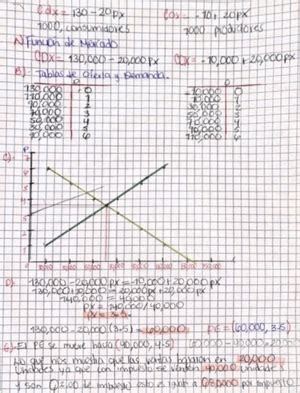 Qdx = 130 - 20px Qox = -10 + 20px
1000, consumidores 1000 productores
A) Función de Mercado
QDx = 130,000 - 20,000px QOx = -10,000 + 20,000px
B) Tablas de Oferta y Demanda.
130,000 0 -10,000 0
110,000 1 10,000 1
90,000 2 30,000 2
70,000 3 50,000 3
50,000 4 70,000 4
30,000 5 90,000 5
10,000 6 110,000 6
C)
D) 130,000 - 20,000px = -10,000 + 20,000px
130,000 + 10,000 = 20,000px + 20,000px
140,000 = 40,000
px = 140,000/40,000
px = 3.5
130,000 - 20,000(3.5) = 60,000 PE = (60,000, 3.5)
E) El PE se mueve hacia (40,000, 4.5)
No que nos muestra que las ventas bajaron en 20,000
unidades ya que con impuesto se venden 40,000 unidades
y son Q2.00 de impuesto esto es igual a Q80,000 por impuesto